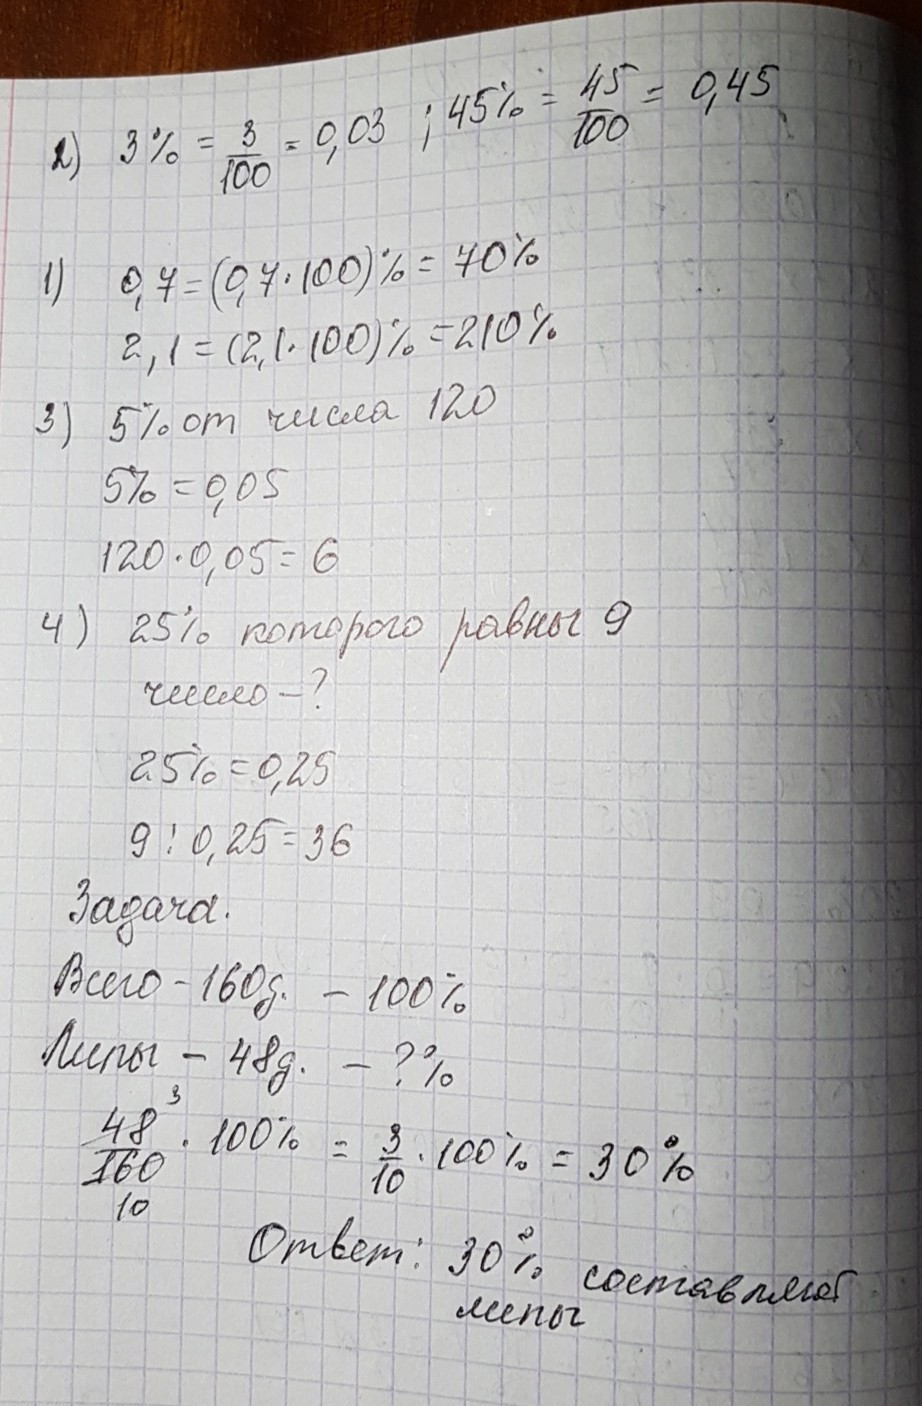 2) 3% = 3/100 = 0,03 ; 45% = 45/100 = 0,45
1) 0,7 = (0,7 · 100)% = 70%
2,1 = (2,1 · 100)% = 210%
3) 5% от числа 120
5% = 0,05
120 · 0,05 = 6
4) 25% которого равны 9
число – ?
25% = 0,25
9 : 0,25 = 36
Задача.
Всего – 160 д. – 100%
Липы – 48 д. – ? %
48 3/160 10 · 100% = 3/10 · 100% = 30%
Ответ: 30% составляют
липы